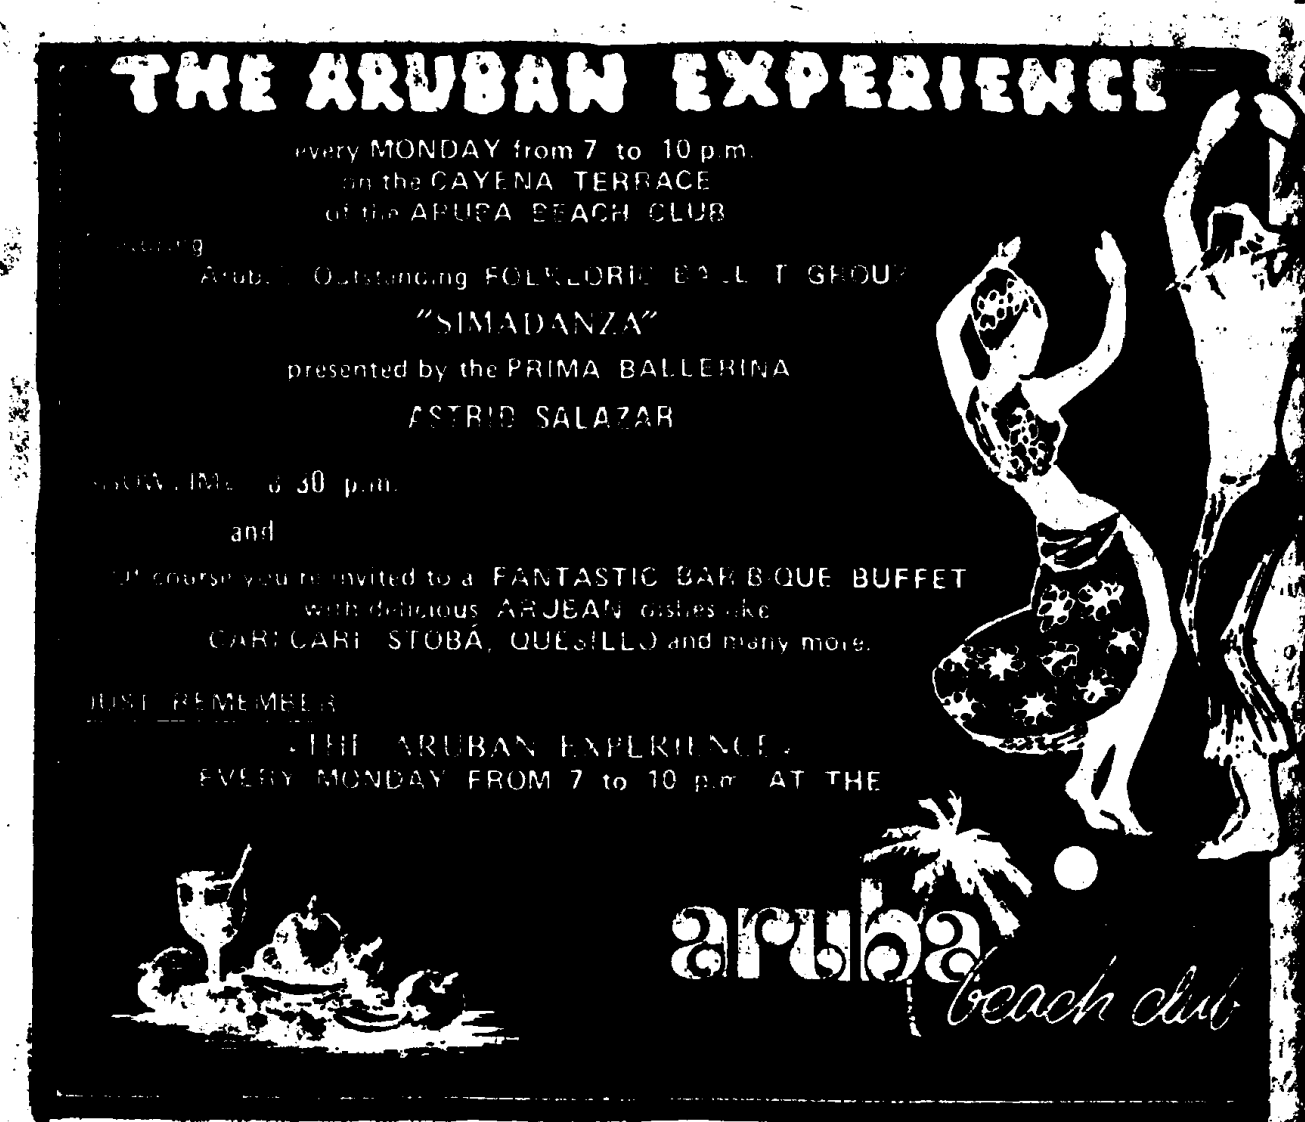 THE ARUBAN EXPERIENCE
every MONDAY from 7 to 10 p.m.
on the CAYENA TERRACE
of the ARUBA BEACH CLUB
Featuring
Aruba's Outstanding FOLKLORIC BALLET GROUP
"SIMADANZA"
presented by the PRIMA BALLERINA
ASTRID SALAZAR
SHOWTIME 8 30 p.m.
and
Of course you're invited to a FANTASTIC BAR-B-QUE BUFFET
with delicious ARUBAN dishes like
CARI CARI STOBÁ, QUESILLO and many more.
JUST REMEMBER
"THE ARUBAN EXPERIENCE"
EVERY MONDAY FROM 7 to 10 p.m. AT THE
aruba
beach club